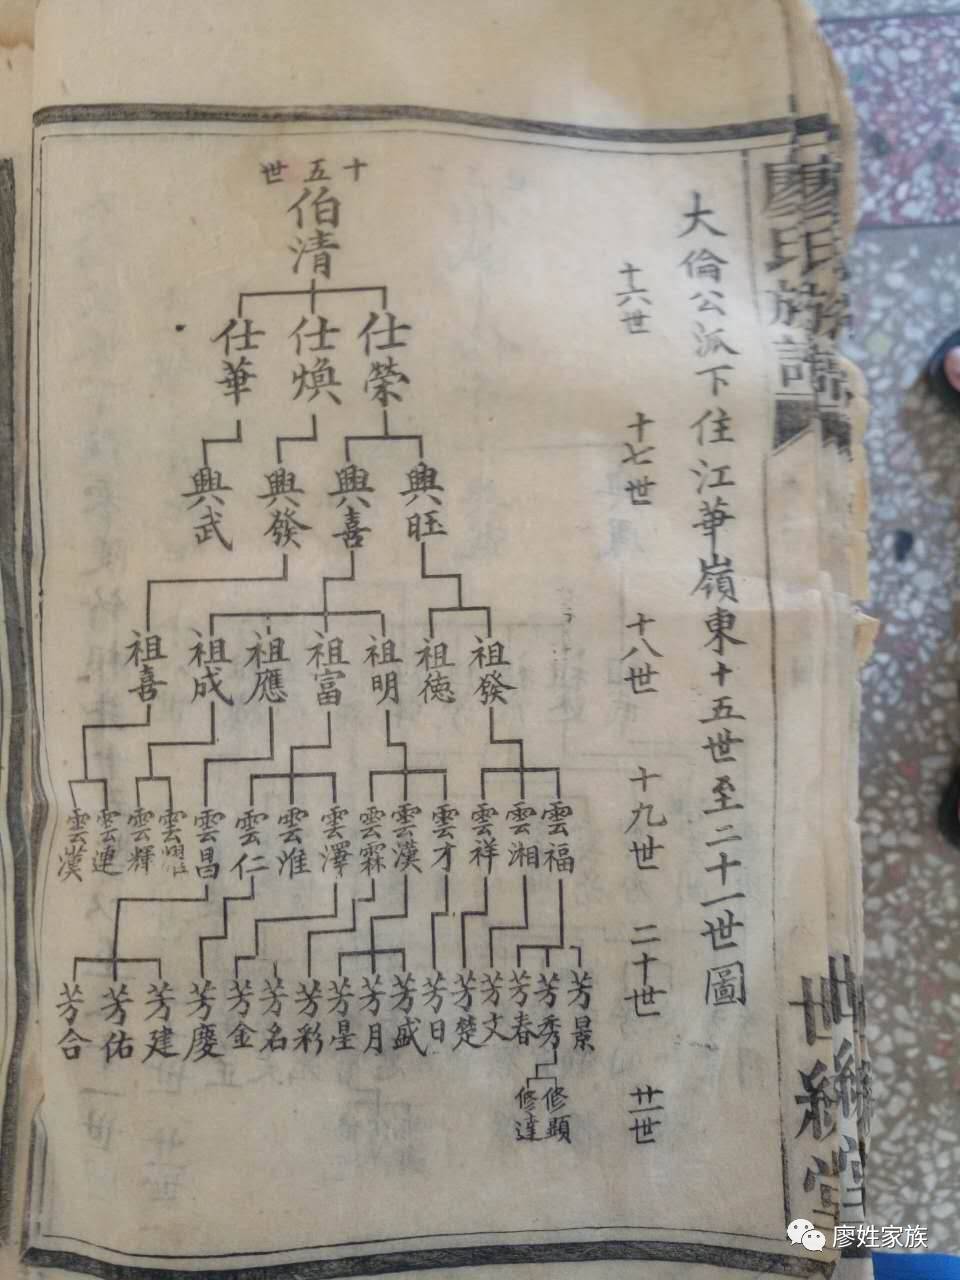 廖氏族譜
世綵堂
大倫公派下住江華嶺東十五世至二十一世圖
十五世
伯清
十六世
仕榮 仕煥 仕華
十七世
興旺 興喜 興發 興武
十八世
祖發 祖德 祖明 祖富 祖應 祖成 祖喜
十九世
雲福 雲湘 雲祥 雲才 雲漢 雲霖 雲澤 雲淮 雲仁 雲昌 雲耀 雲輝 雲連 雲漢
二十世
芳景 芳秀 芳春 芳文 芳楚 芳日 芳盛 芳月 芳星 芳彩 芳名 芳金 芳慶 芳建 芳佑 芳合
廿一世
修顯 修達
廖姓家族